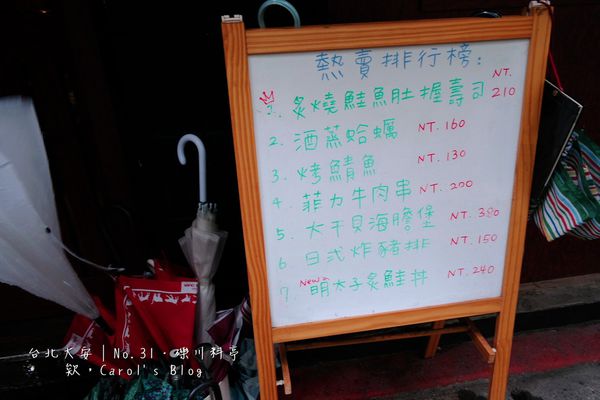 熱賣排行榜:
1. 炙燒鮭魚肚握壽司 NT. 210
2. 酒蒸蛤蠣 NT. 160
3. 烤鯖魚 NT. 130
4. 菲力牛肉串 NT. 200
5. 大干貝海膽堡 NT. 380
6. 日式炸豬排 NT. 150
7. New 明太子炙鮭丼 NT. 240
台北大安│No.31・礫川料亭
欸・Carol's Blog